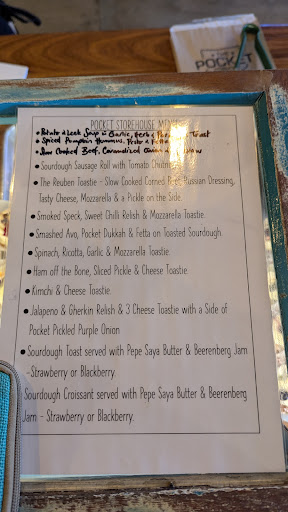 THE
POCKET
POCKET STOREHOUSE MENU
• Potato & Leek Soup w Garlic, Herb & Toast
• Spiced Pumpkin Hummus, Pesto & Fetta
• Slow Cooked Beef, Caramelized Onion &
• Sourdough Sausage Roll with Tomato Chutney
• The Reuben Toastie - Slow Cooked Corned Beef, Russian Dressing,
Tasty Cheese, Mozzarella & a Pickle on the Side.
• Smoked Speck, Sweet Chilli Relish & Mozzarella Toastie.
• Smashed Avo, Pocket Dukkah & Fetta on Toasted Sourdough.
• Spinach, Ricotta, Garlic & Mozzarella Toastie.
• Ham off the Bone, Sliced Pickle & Cheese Toastie.
• Kimchi & Cheese Toastie.
• Jalapeno & Gherkin Relish & 3 Cheese Toastie with a Side of
Pocket Pickled Purple Onion
• Sourdough Toast served with Pepe Saya Butter & Beerenberg Jam
-Strawberry or Blackberry.
Sourdough Croissant served with Pepe Saya Butter & Beerenberg
Jam - Strawberry or Blackberry.